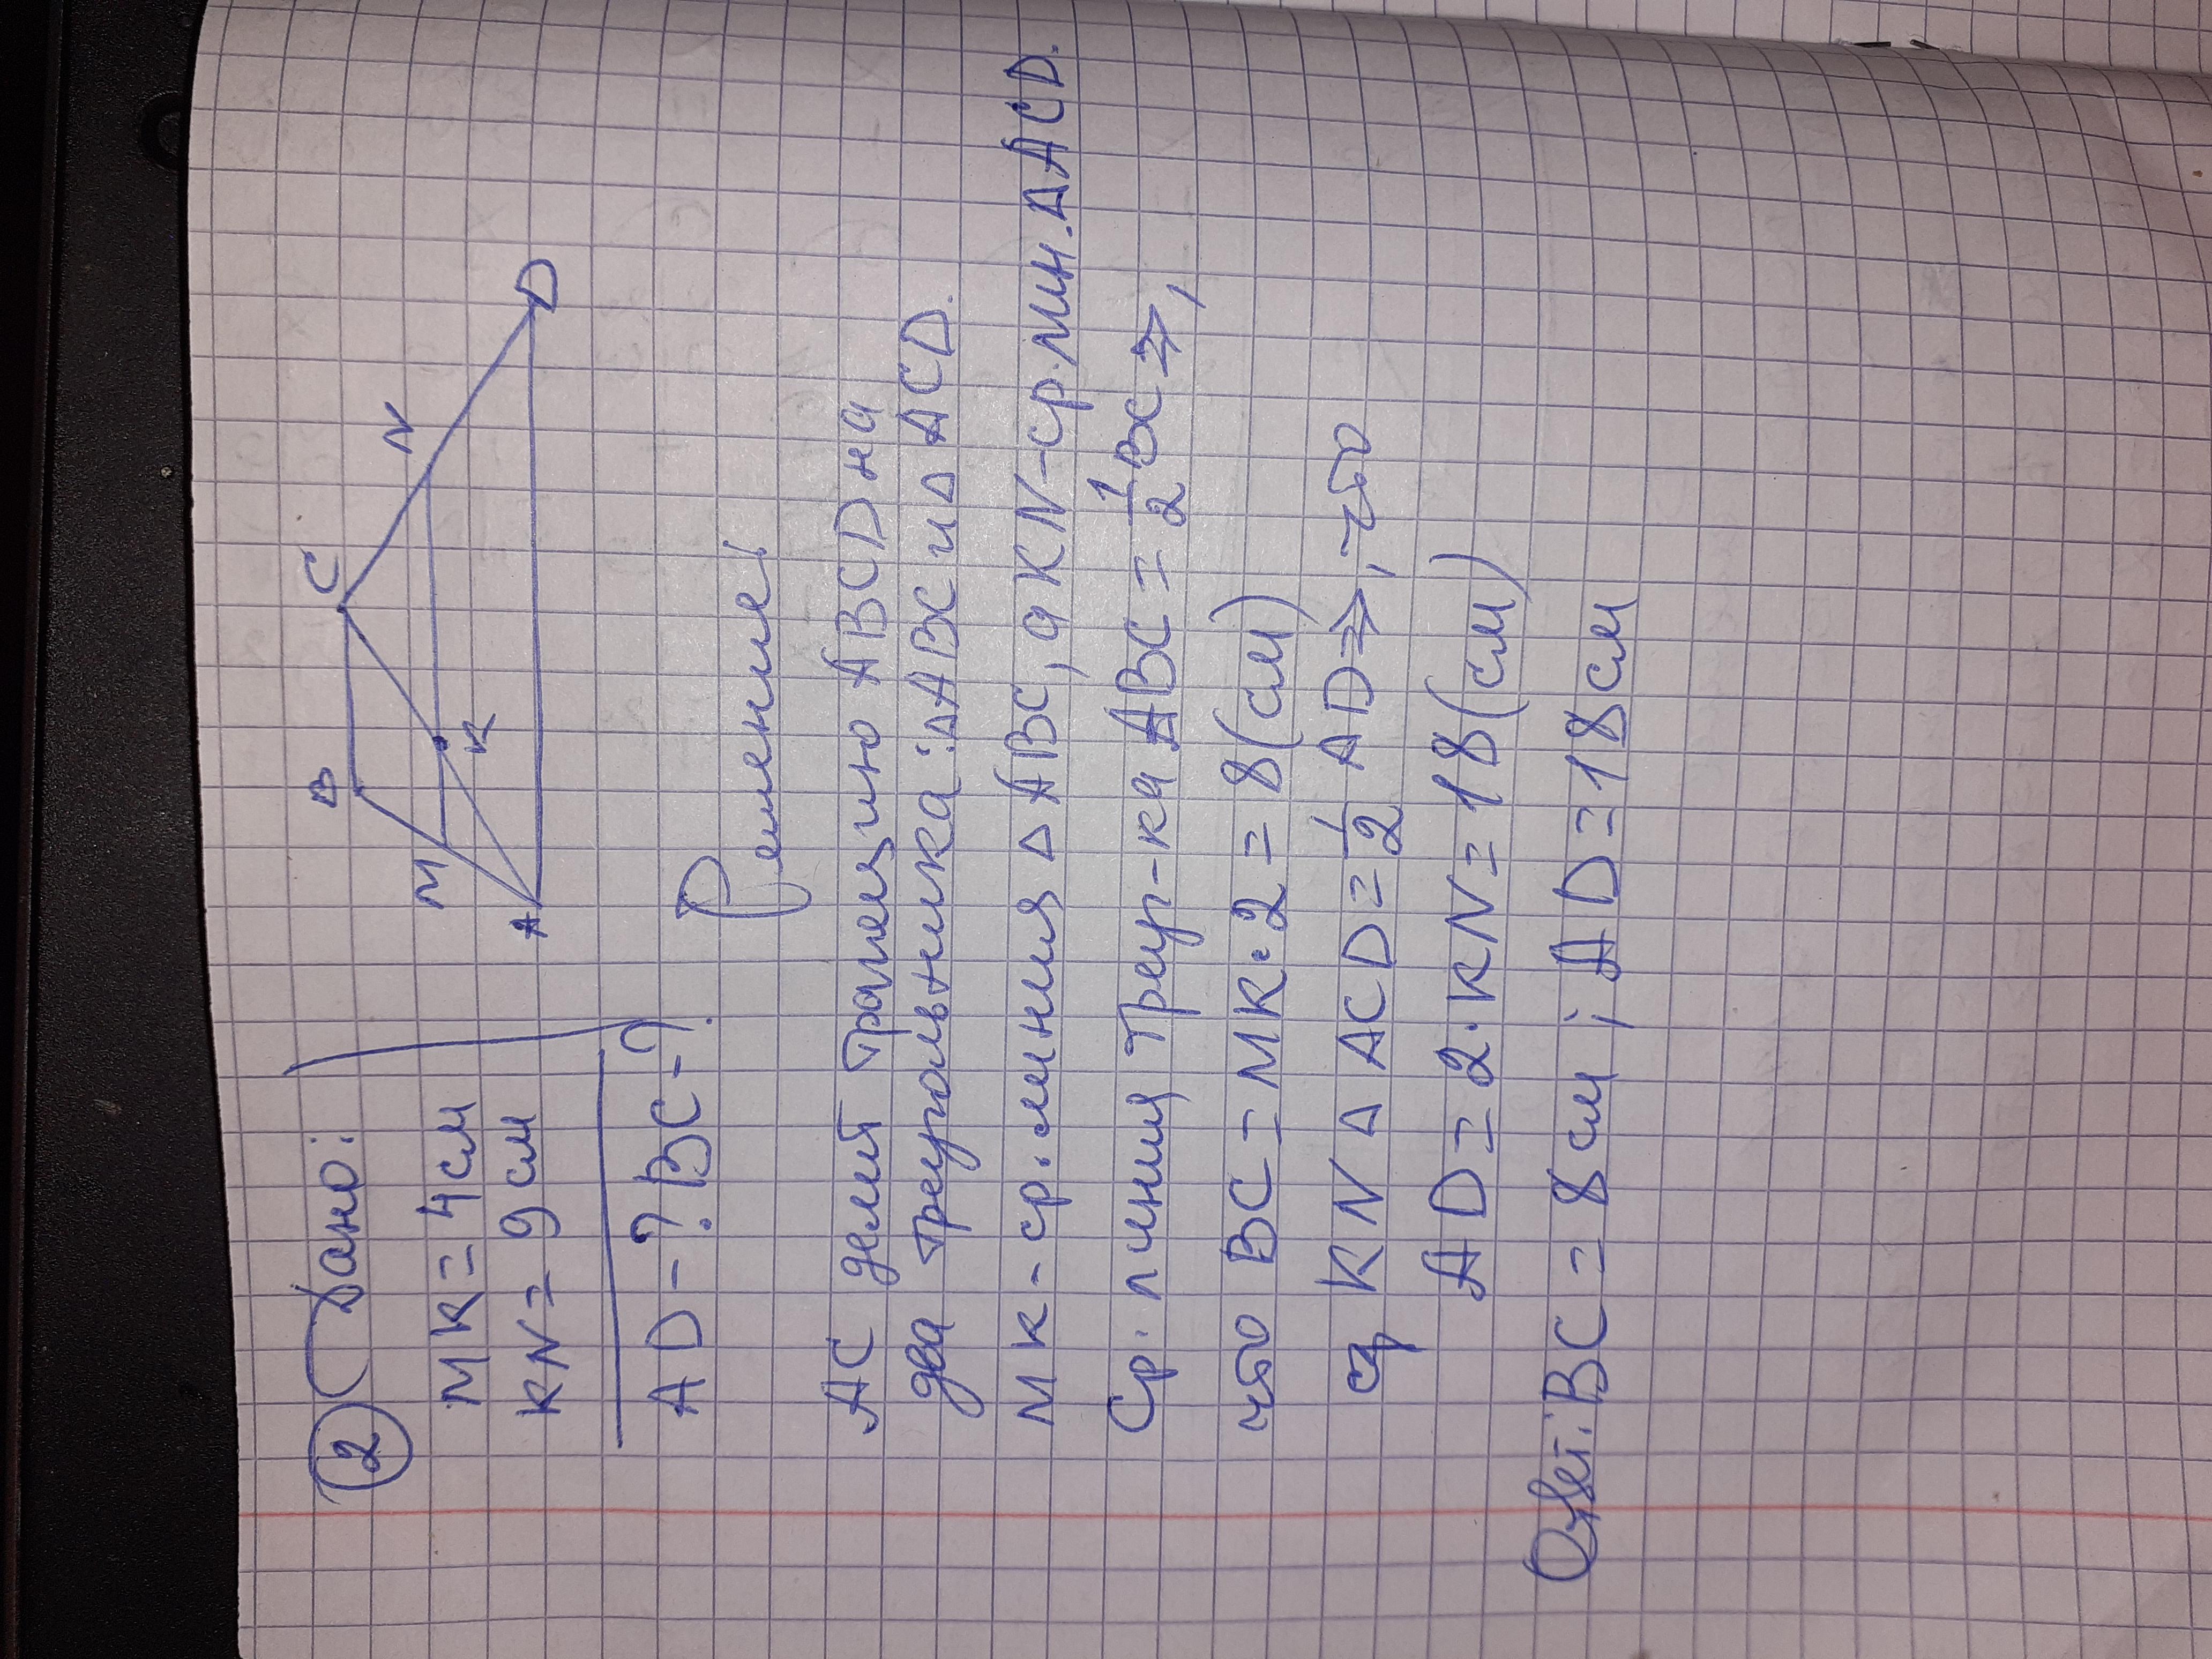 2 Дано:
MK = 4см
KN = 9 см
AD - ? BC - ?
B C
M K N
A D
Решение:
AC делит трапецию ABCD на
два треугольника: △ABC и △ ACD.
MK - ср. линия △ ABC, а KN - ср. лин. △ACD.
Ср. линия треуг-ка ABC = 1/2 BC ⇒,
что BC = MK · 2 = 8 (см)
KN △ ACD = 1/2 AD ⇒, что
AD = 2 · KN = 18 (см)
Ответ: BC = 8 см ; AD = 18 см